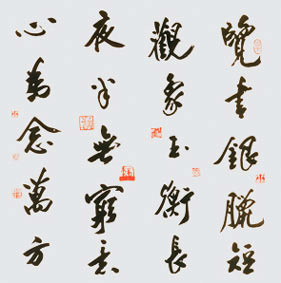 覽書銀臘短
觀象玉衡長
夜半無窮意
心為念萬方